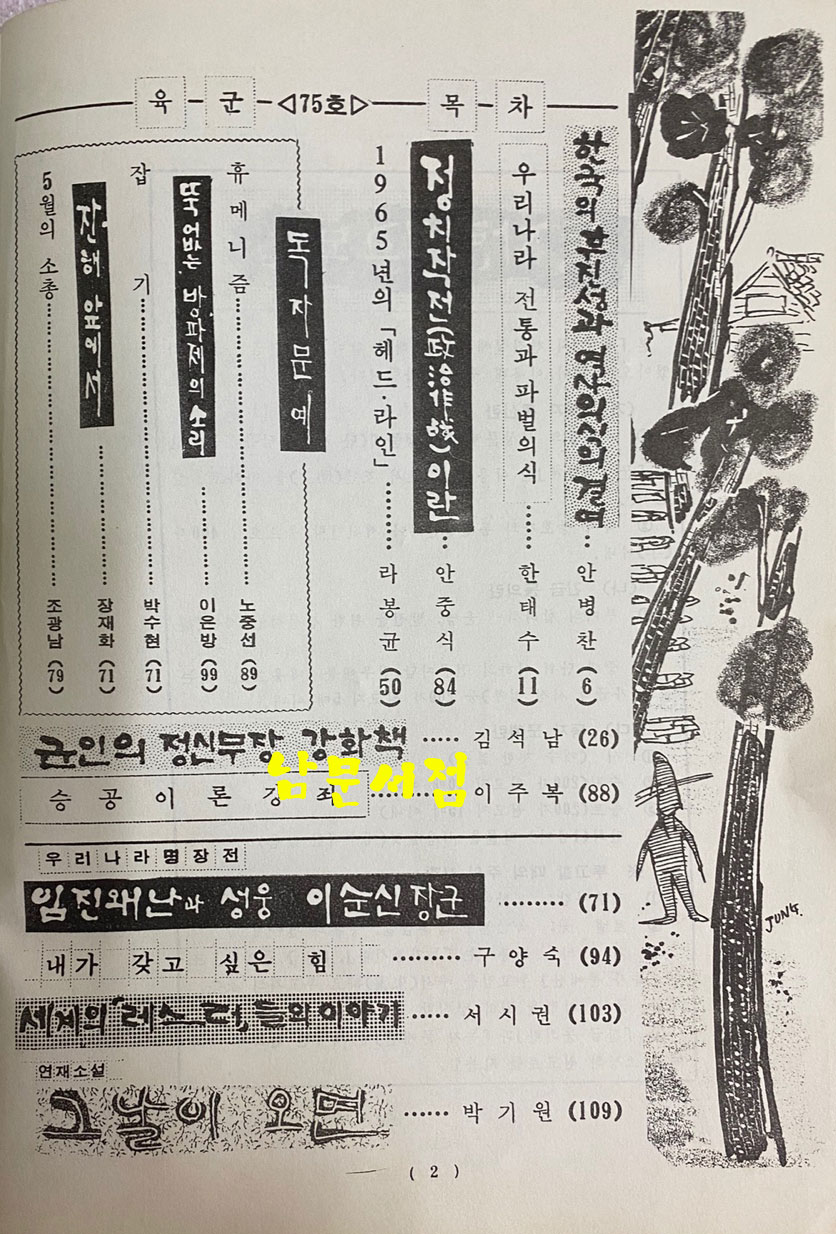 육군 ◁75호▷ 목차
한국의 후진성과 연구의식의 ‥‥ 안병찬 (6)
우리나라 전통과 파벌의식 ‥‥‥ 한태수 (11)
정치작전(政治作戰)이란 ‥‥ 안중식 (84)
1965년의 「헤드·라인」 ‥‥‥‥ 라봉균 (50)
독자문예
휴메니즘 ‥‥‥‥‥‥ 노중선 (89)
방파제의 소리 ‥‥‥ 이은방 (99)
잡기 ‥‥‥‥‥‥ 박수현 (71)
잔해 앞에서 ‥‥‥‥ 장재화 (71)
5월의 소총 ‥‥‥‥‥‥ 조광남 (79)
군인의 정신무장 강화책 ····· 김석남 (26)
승공이론강좌 ············ 이주복 (88)
남문서점
우리나라명장전
임진왜난과 성웅 이순신 장군 ········· (71)
내가 갖고 싶은 힘 ········· 구양숙 (94)
세계의 들의 이야기 ····· 서시권 (103)
연재소설
그날이 오면 ······ 박기원 (109)
JUNG.
( 2 )